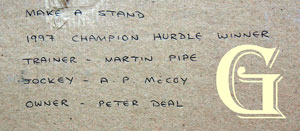 MAKE A STAND
1997 CHAMPION HURDLE WINNER
TRAINER - MARTIN PIPE
JOCKEY - A P McCOY
OWNER - PETER DEAL
G